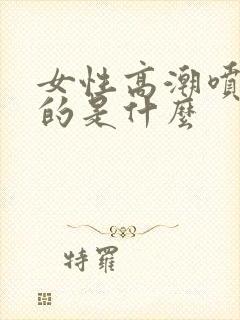 女性高潮噴
的是什麼
特羅